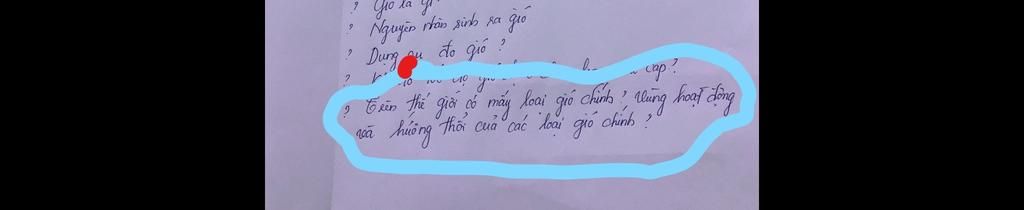 ? Gió là gì
? Nguyên nhân sinh ra gió
? Dụng cụ đo gió ?
? gió cấp ?
? Trên thế giới có mấy loại gió chính ? Vùng hoạt động
và hướng thổi của các loại gió chính ?